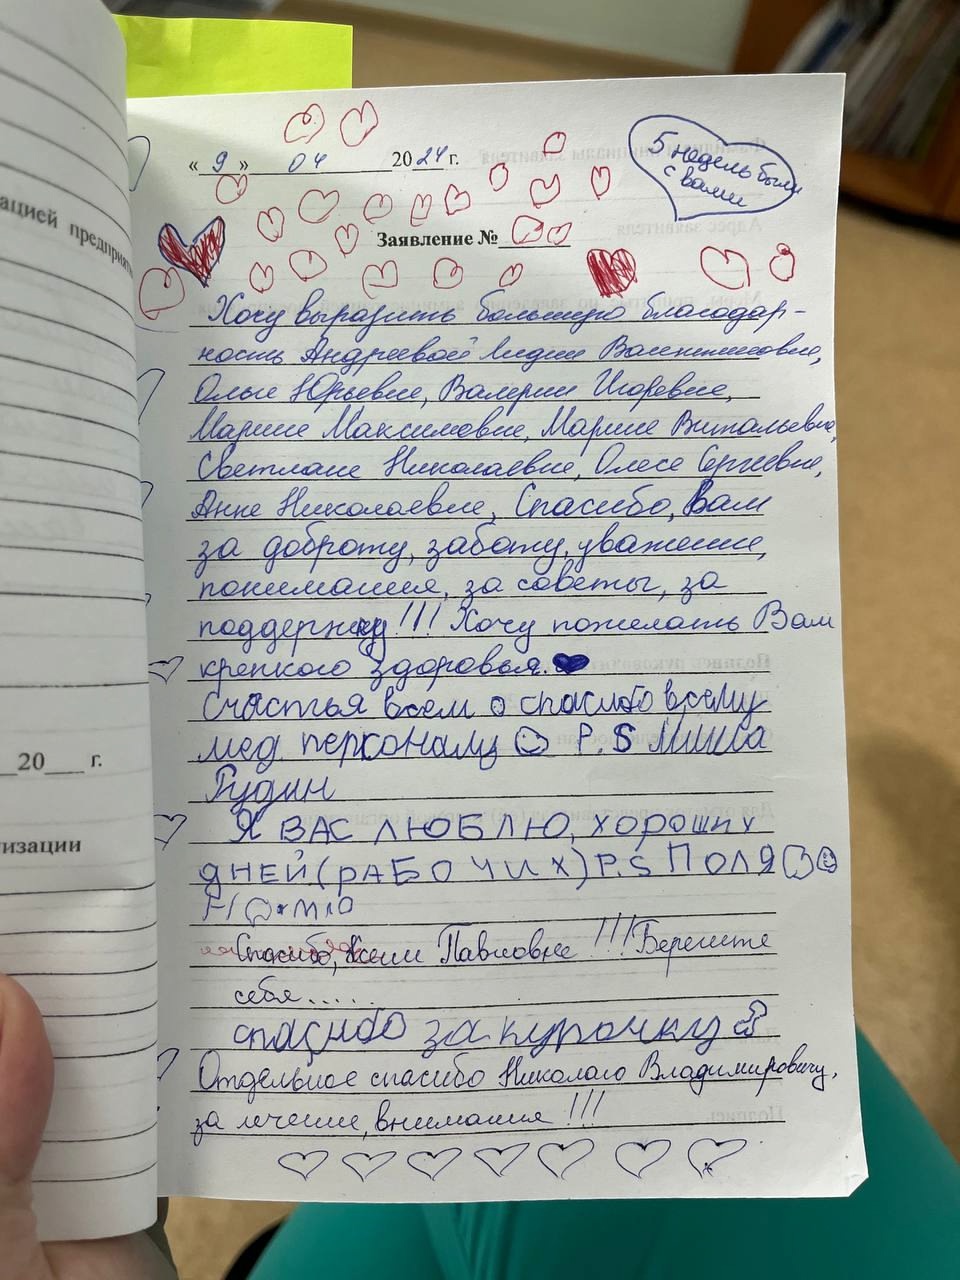 ацией предприят
20___ г.
изации
« 9 » 04 2024 г.
5 недель были
с вами
Заявление №
Хочу выразить большую благодар-
ность Андреевой Лидии Валентиновне,
Ольге Юрьевне, Валерии Игоревне,
Марине Максимовне, Марине Витальевне,
Светлане Николаевне, Олесе Сергеевне,
Анне Николаевне, Спасибо, Вам
за доброту, заботу, уважение,
понимания, за советы, за
поддержку!!! Хочу пожелать Вам
крепкого здоровья.
Счастья всем о спасибо всему
мед персоналу P.S Миша
Гудин
Я ВАС ЛЮБЛЮ, ХОРОШИХ
ДНЕЙ (РАБОЧИХ) P.S ПОЛЯ
Спасибо, Павловне!!! Берегите
себя......
спасибо за курочку
Отдельное спасибо Николаю Владимировичу,
за лечение, внимания!!!